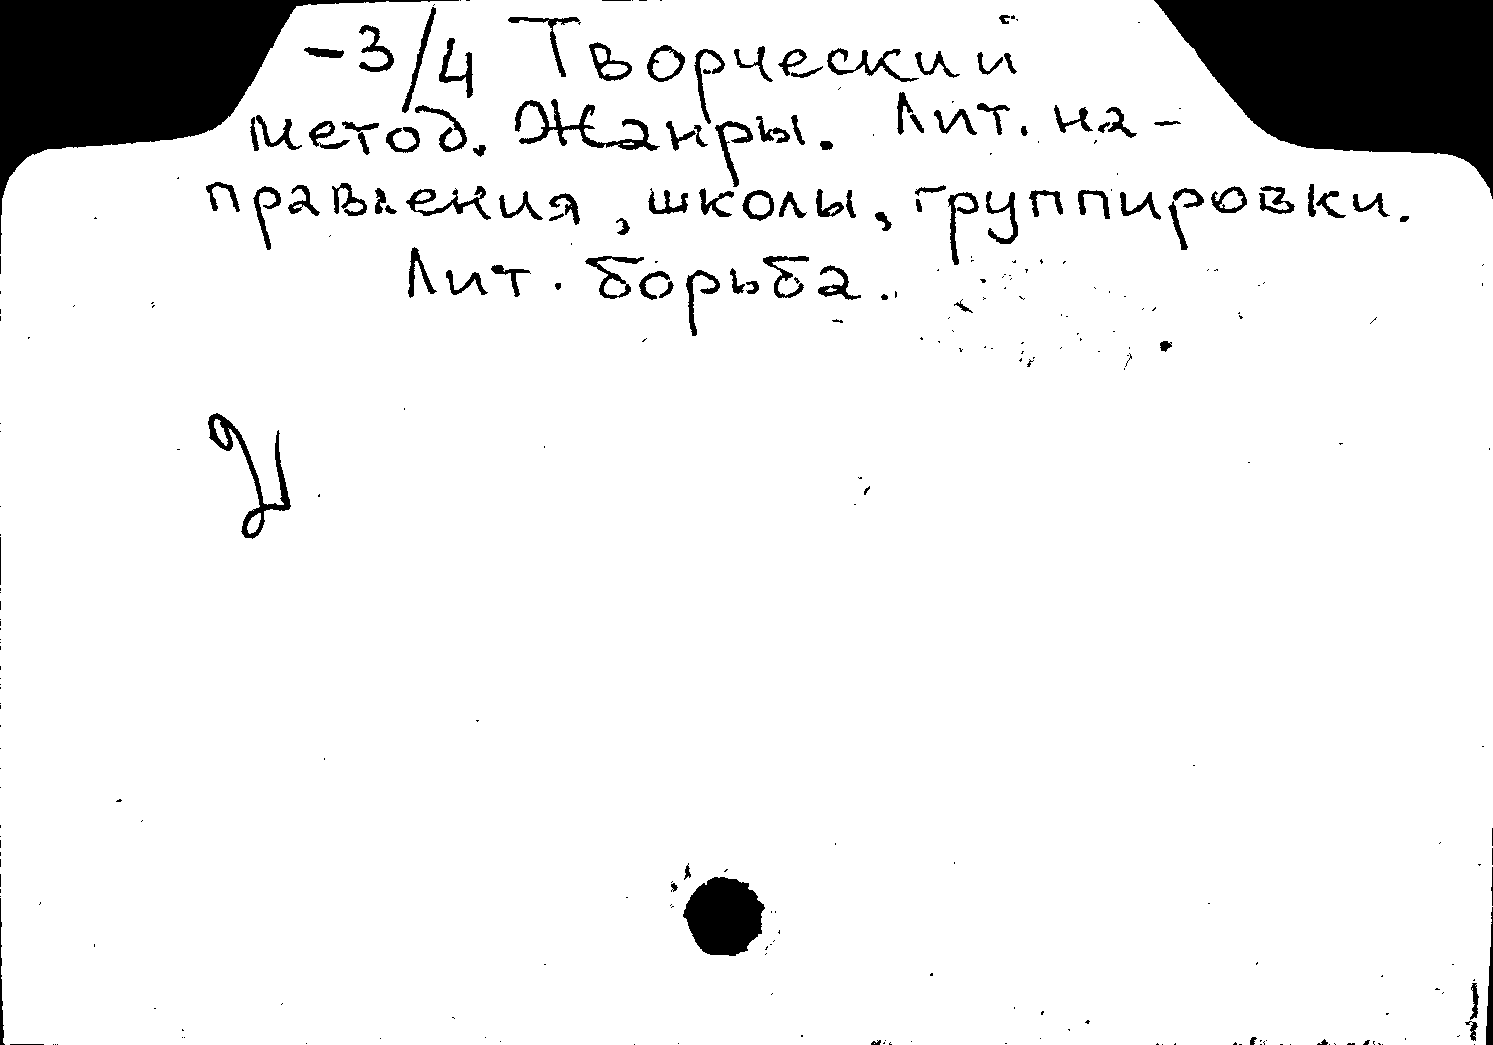 -3/4 Творческий
метод. Жанры. Лит. на-
правления, школы, группировки.
Лит. борьба.